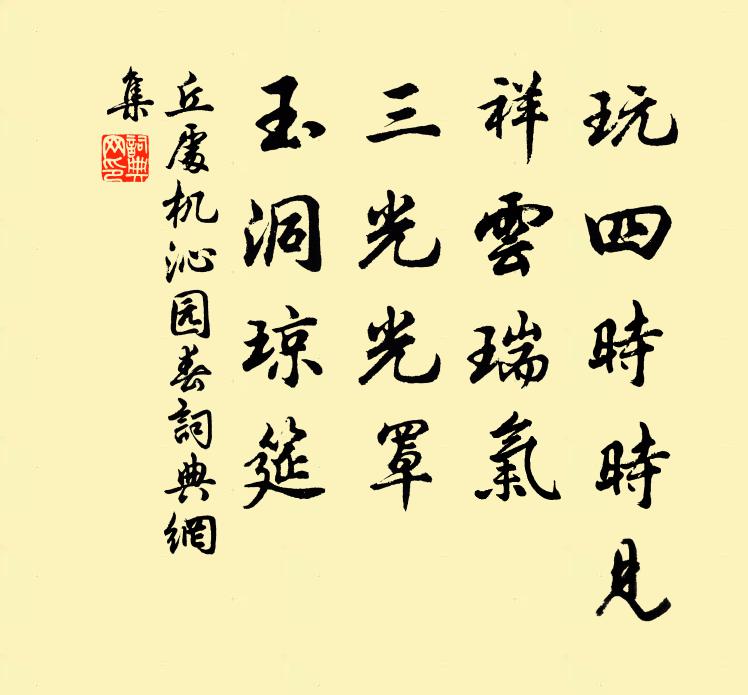 玩四時時見
祥雲瑞氣
三光光罩
玉洞琼筵
丘處机沁园春詞典網
集
詞典網印